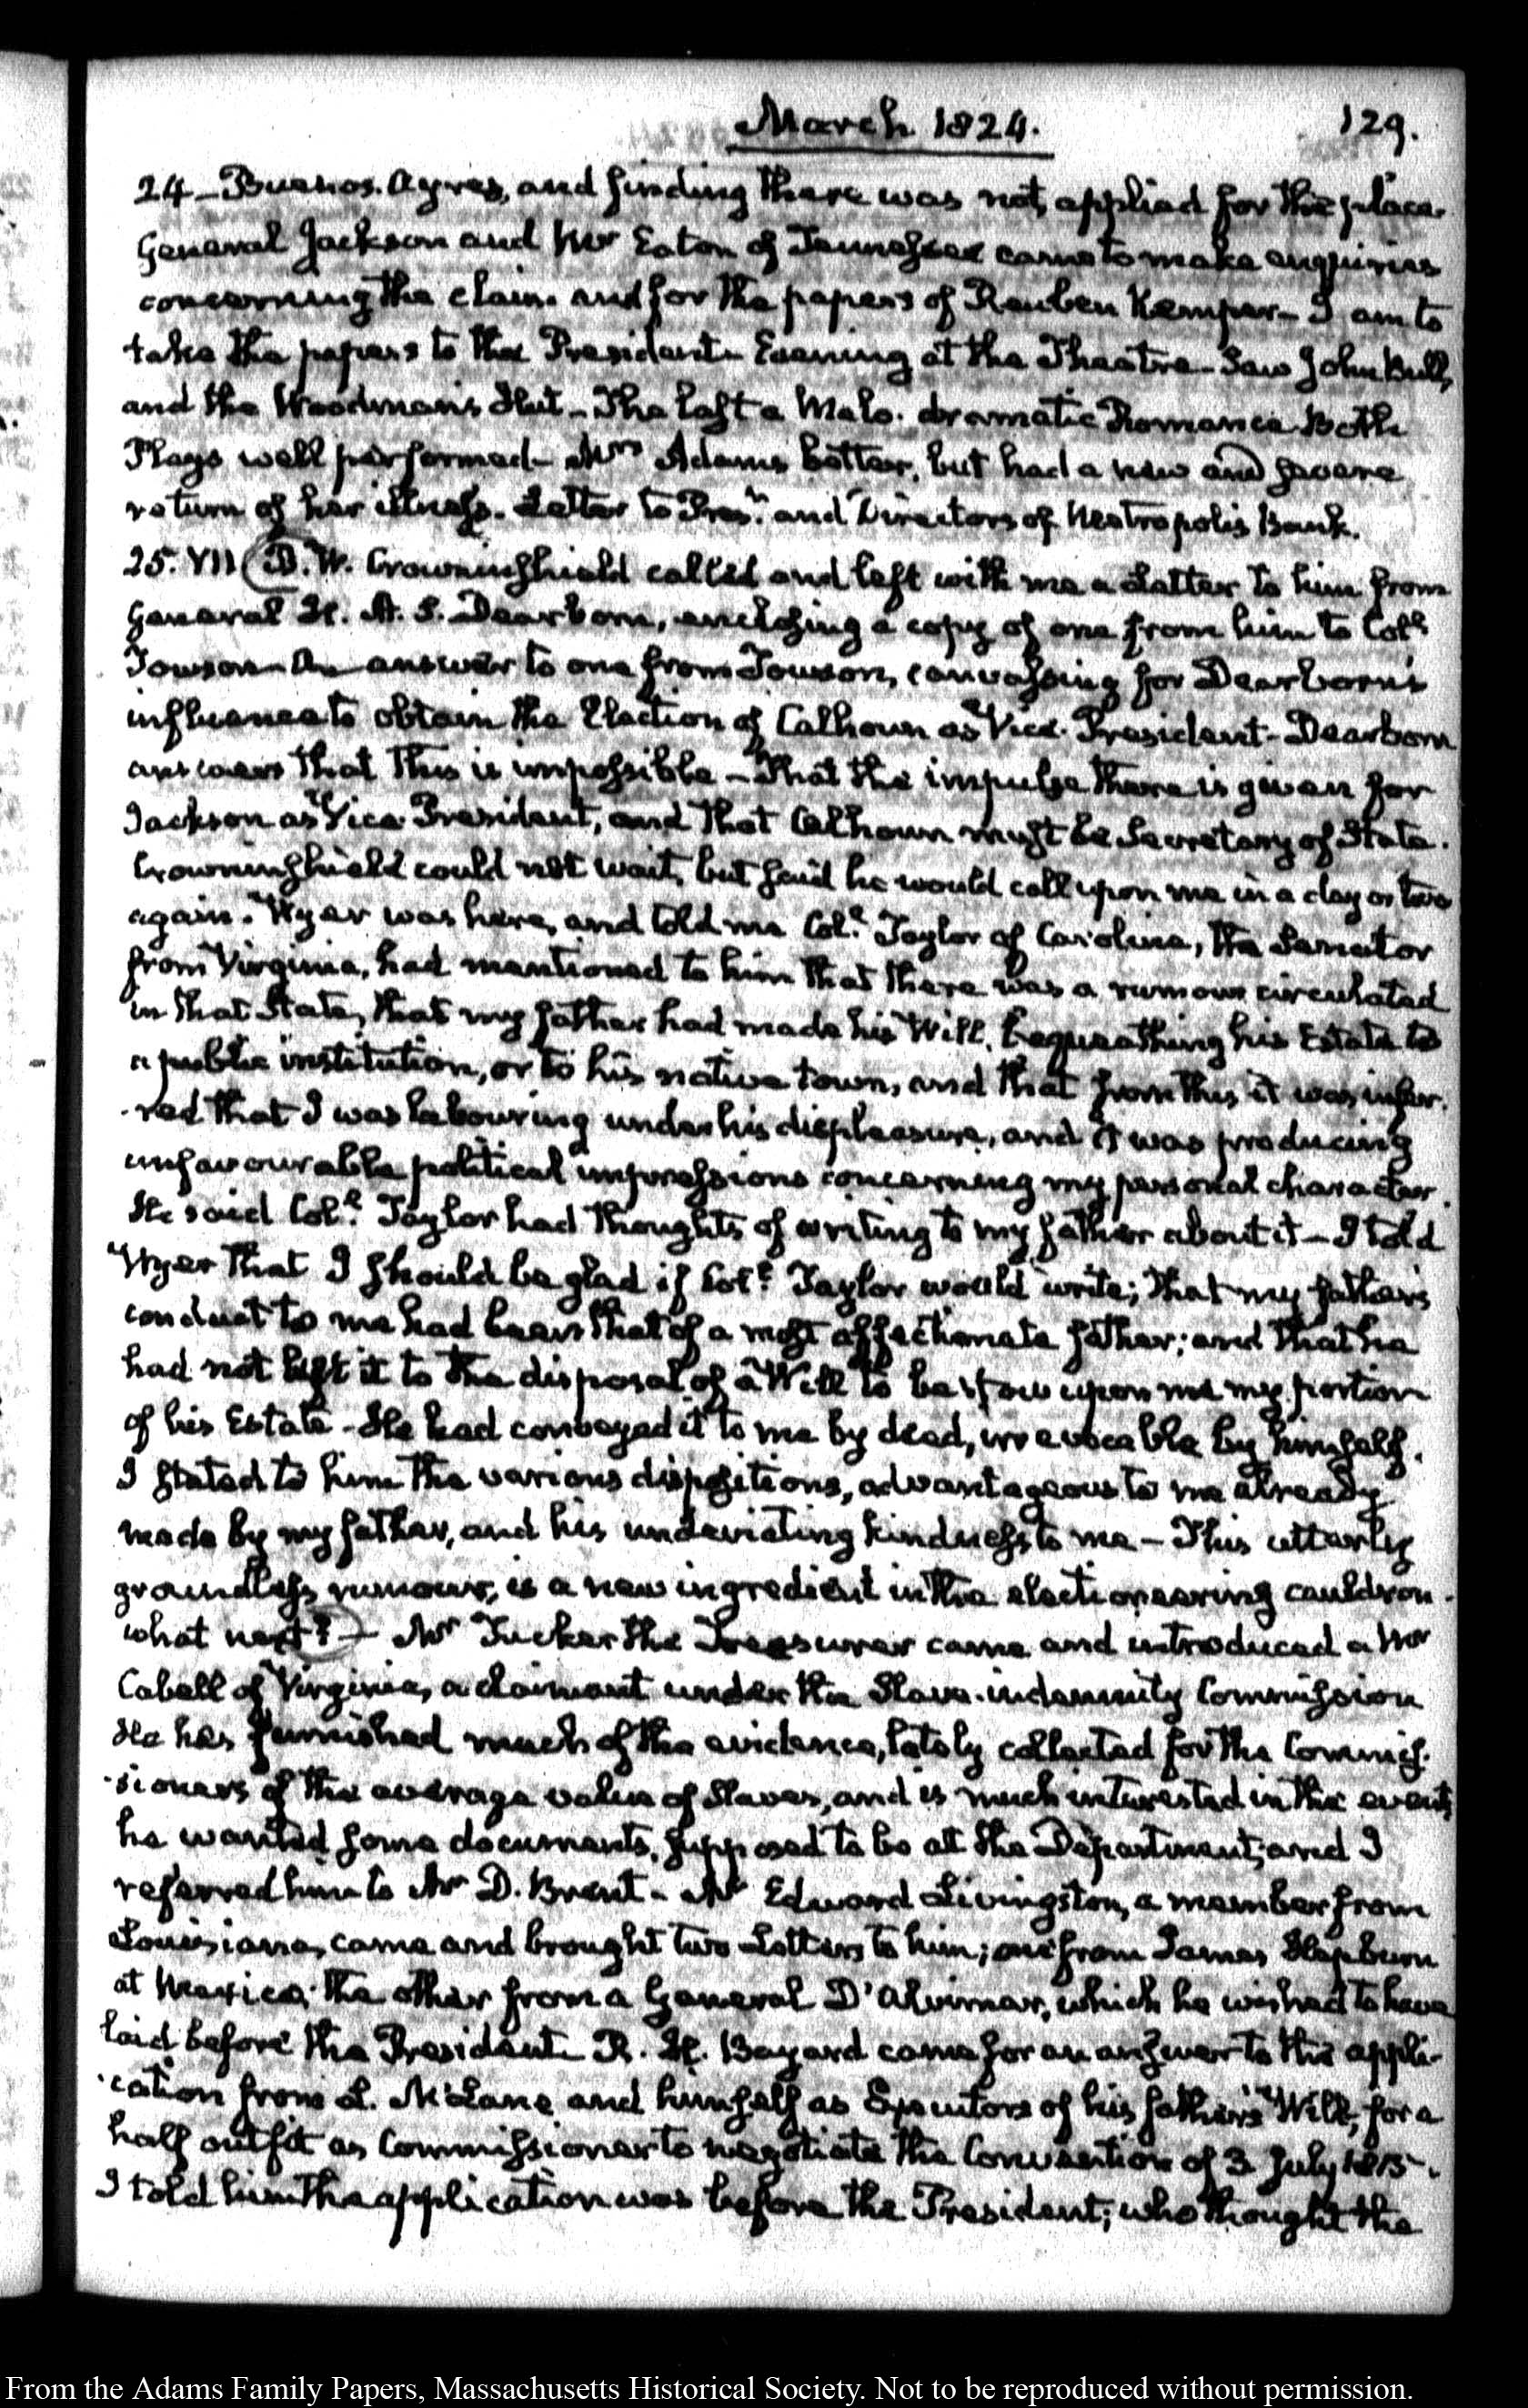 March 1824.
129.
24 – Buenos Ayres, and finding there was not, applied for the place.
General Jackson and Mr Eaton of Tennessee came to make enquiries
concerning the claim and for the papers of Reuben Kemper – I am to
take the papers to the President – Evening at the Theatre – Saw John Bull,
and the Woodman's Hut – The last a Melo-dramatic Romance. Both
Plays well performed – Mrs Adams better, but had a new and severe
return of her illness. Letter to Prest. and Directors of Metropolis Bank.
25. VII B. W. Crowninshield called and left with me a Letter to him from
General H. A. S. Dearborn, enclosing a copy of one from him to Coll.
Towson – An answer to one from Towson, canvassing for Dearborn's
influence to obtain the Election of Calhoun as Vice-President – Dearborn
answers that this is impossible – That the impulse there is given for
Jackson as Vice-President, and that Calhoun must be Secretary of State.
Crowninshield could not wait, but said he would call upon me in a day or two
again. Wyer was here, and told me Coll. Taylor of Carolina, the Senator
from Virginia, had mentioned to him that there was a rumour circulated
in that State, that my father had made his Will, bequeathing his Estate to
a public institution, or to his native town, and that from this it was infer-
-red that I was labouring under his displeasure, and it was producing
unfavourable political impressions concerning my personal character.
He said Coll. Taylor had thoughts of writing to my father about it – I told
Wyer that I should be glad if Coll. Taylor would write; that my father's
conduct to me had been that of a most affectionate father; and that he
had not left it to the disposal of a Will to bestow upon me my portion
of his Estate – He had conveyed it to me by deed, irrevocable by himself.
I stated to him the various dispositions, advantageous to me already
made by my father, and his undeviating kindness to me – This utterly
groundless rumour, is a new ingredient in the electioneering cauldron –
what next? – Mr Tucker the Treasurer came and introduced a Mr
Cabell of Virginia, a claimant under the Slave-indemnity Commission
He has furnished much of the evidence, lately collected for the Commis-
-sioners of the average value of Slaves, and is much interested in the event;
he wanted some documents, supposed to be at the Department; and I
referred him to Mr D. Brent – Mr Edward Livingston, a member from
Louisiana, came and brought two Letters to him; one from James Hepburn
at Mexico; the other from a General D'Alvimar, which he wished to have
laid before the President – R. H. Bayard came for an answer to the appli-
-cation from L. McLane and himself as Executors of his father's Will, for a
half outfit as Commissioner to negotiate the Convention of 3 July 1815.
I told him the application was before the President; who thought the
From the Adams Family Papers, Massachusetts Historical Society. Not to be reproduced without permission.